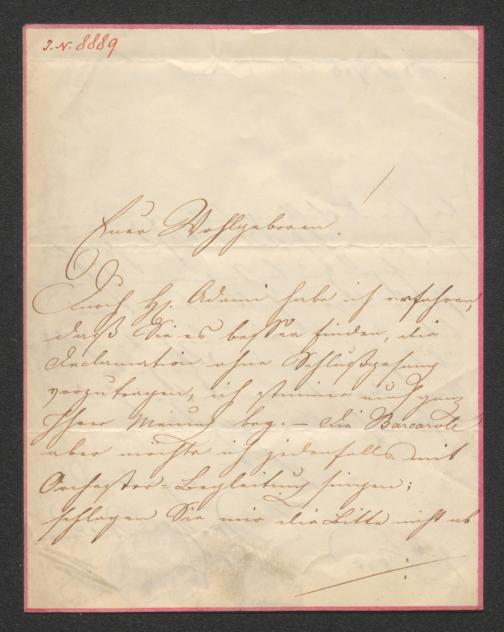 J. N. 8889
Euer Wohlgeboren.
Durch H. Adami habe ich erfahren,
daß Sie es besser finden, die
Declamation ohne Schlußgesang
vorzutragen, ich stimme auch ganz
Ihrer Meinung bey. – Die Barcarole
aber möchte ich jedenfalls mit
Orchester-Begleitung singen;
schlagen Sie mir die Bitte nicht ab